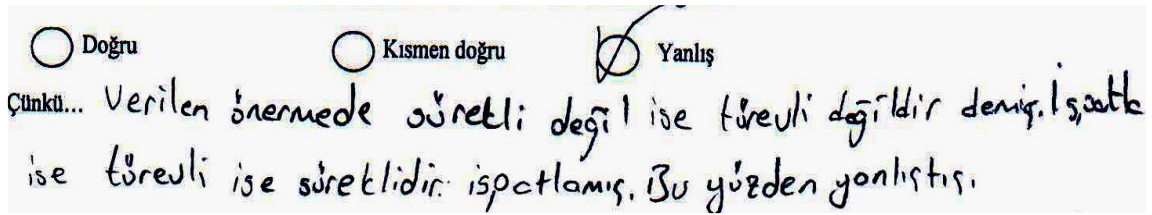 Doğru Kısmen doğru Yanlış
Çünkü... Verilen önermede sürekli değil ise türevli değildir demiş. İspatta
ise türevli ise süreklidir ispatlamış. Bu yüzden yanlıştış.